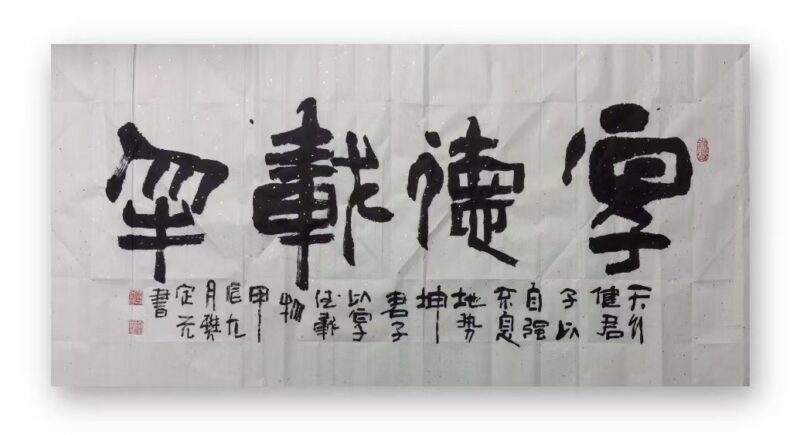 厚德載物
天行
健君
子以
自强
不息
地势
坤
君子
以厚
德載
物
甲
辰九
月樊
定元
書